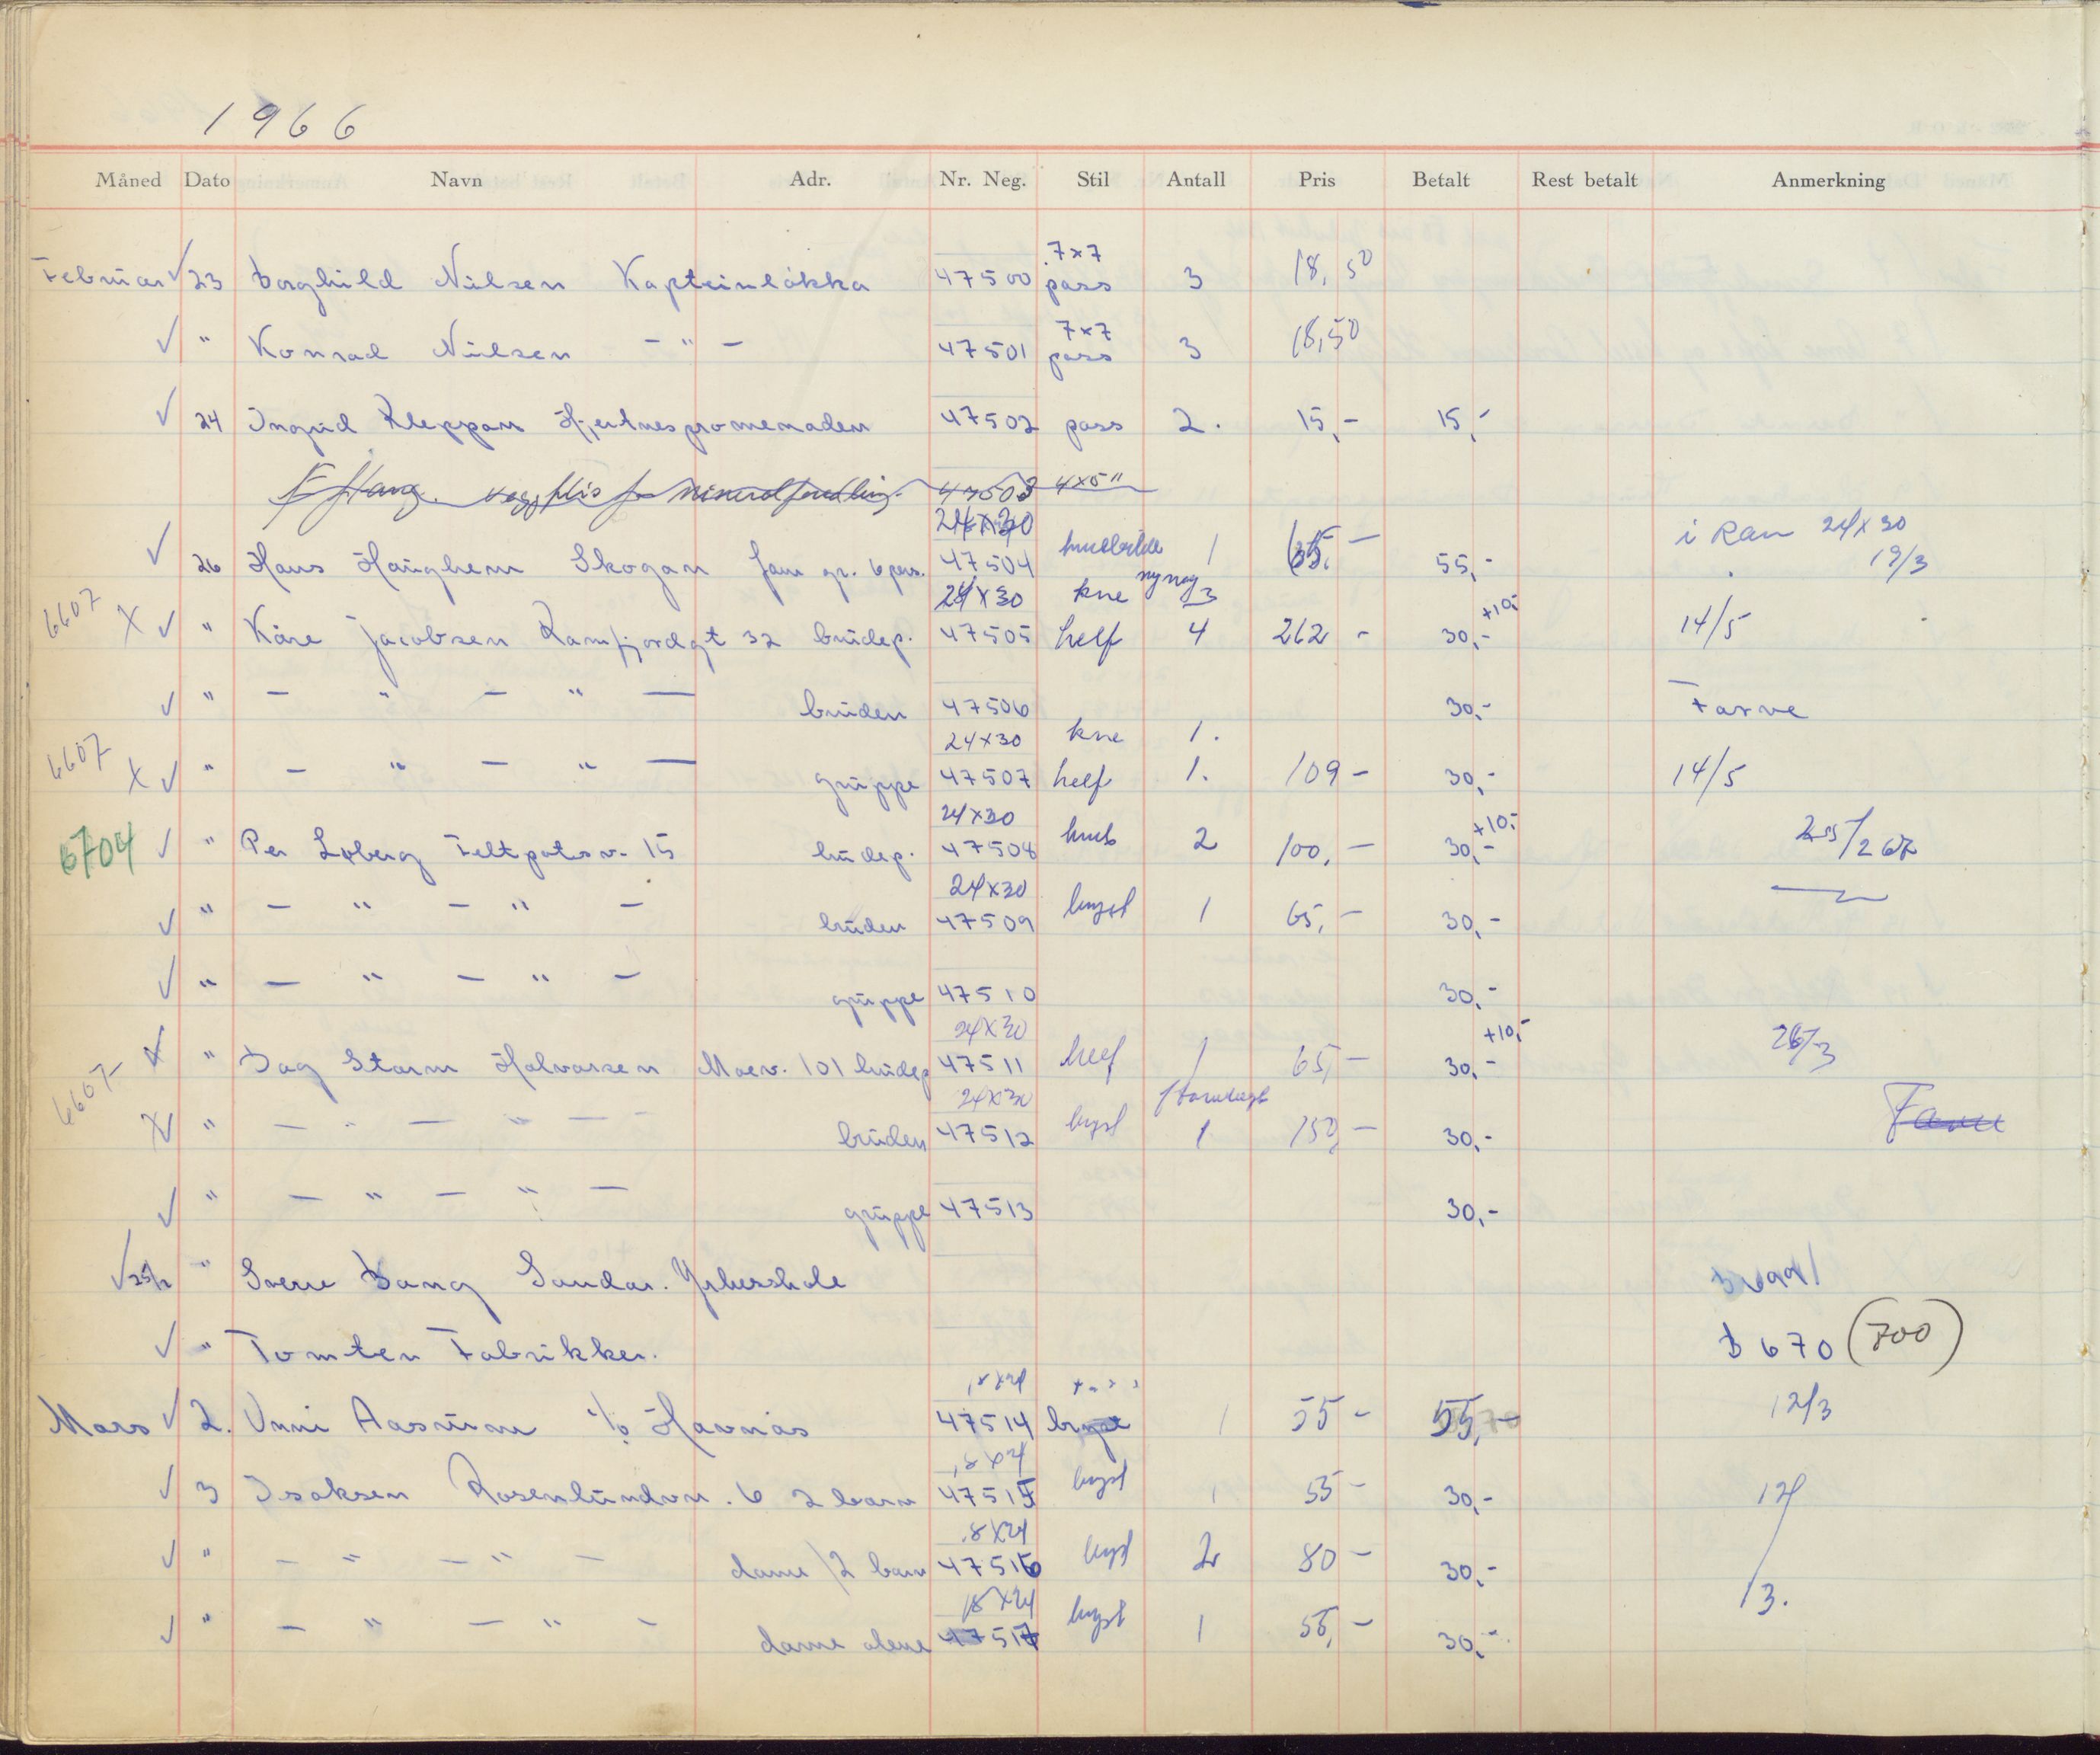 1966
Måned Dato Navn Adr. Nr. Neg. Stil Antall Pris Betalt Rest betalt Anmerkning
7x7
Februar √ 23 Borghild Nilsen Kapteinløkka 47500 pass 3 18,50
7x7
√ " Konrad Nilsen - " - 47501 pass 3 18,50
√ 24 Ingrid Kleppan Hjertnespromenaden 47502 pass 2. 15,- 15,-
47503 4x5"
24x30 i Ram 24x30
√ 26 Hans Haughem Skogan fam gr. 6 pers. 47504 1 55,- 19/3
6607 24x30 kne ny neg 3 +10,-
X √ " Kåre Jacobsen Ramfjordgt 32 brudep. 47505 helf 4 262 - 30,- 14/5
√ " - " - " - bruden 47506 30,- Farve
6607 24x30 kne 1.
X √ " - " - " - gruppe 47507 helf 1. 109 - 30,- 14/5
24x30 +10,-
6704 √ " Per Loberg Feltpatsv. 15 brudep. 47508 2 100,- 30,-
24x30
√ " - " - " - bruden 47509 byst 1 65,- 30,-
√ " - " - " - gruppe 47510 30,-
24x30 +10,-
6607 X " Dag Storm Halvorsen Moev. 101 brudep 47511 helf 1 65,- 30,- 26/3
24x30
X √ " - " - " - bruden 47512 byst 1 150,- 30,-
√ " - " - " - gruppe 47513 30,-
√ 25/2 " Sverre Bang Sandar. Yrkesskole
√ " Tomten Fabrikker. B 670 (700)
18x24
Mars √ 2. Unni Aasrum c/o Havnås 47514 byst 1 55 - 55,- 12/3
18x24
√ 3 Isaksen Rosenlundvn. 6 2 barn 47515 byst 1 55 - 30,- 12/
18x24
√ " - " - " - dame /2 barn 47516 byst 2 80 - 30,-
18x24 /3.
√ " - " - " - dame alene 47517 byst 1 55,- 30,-